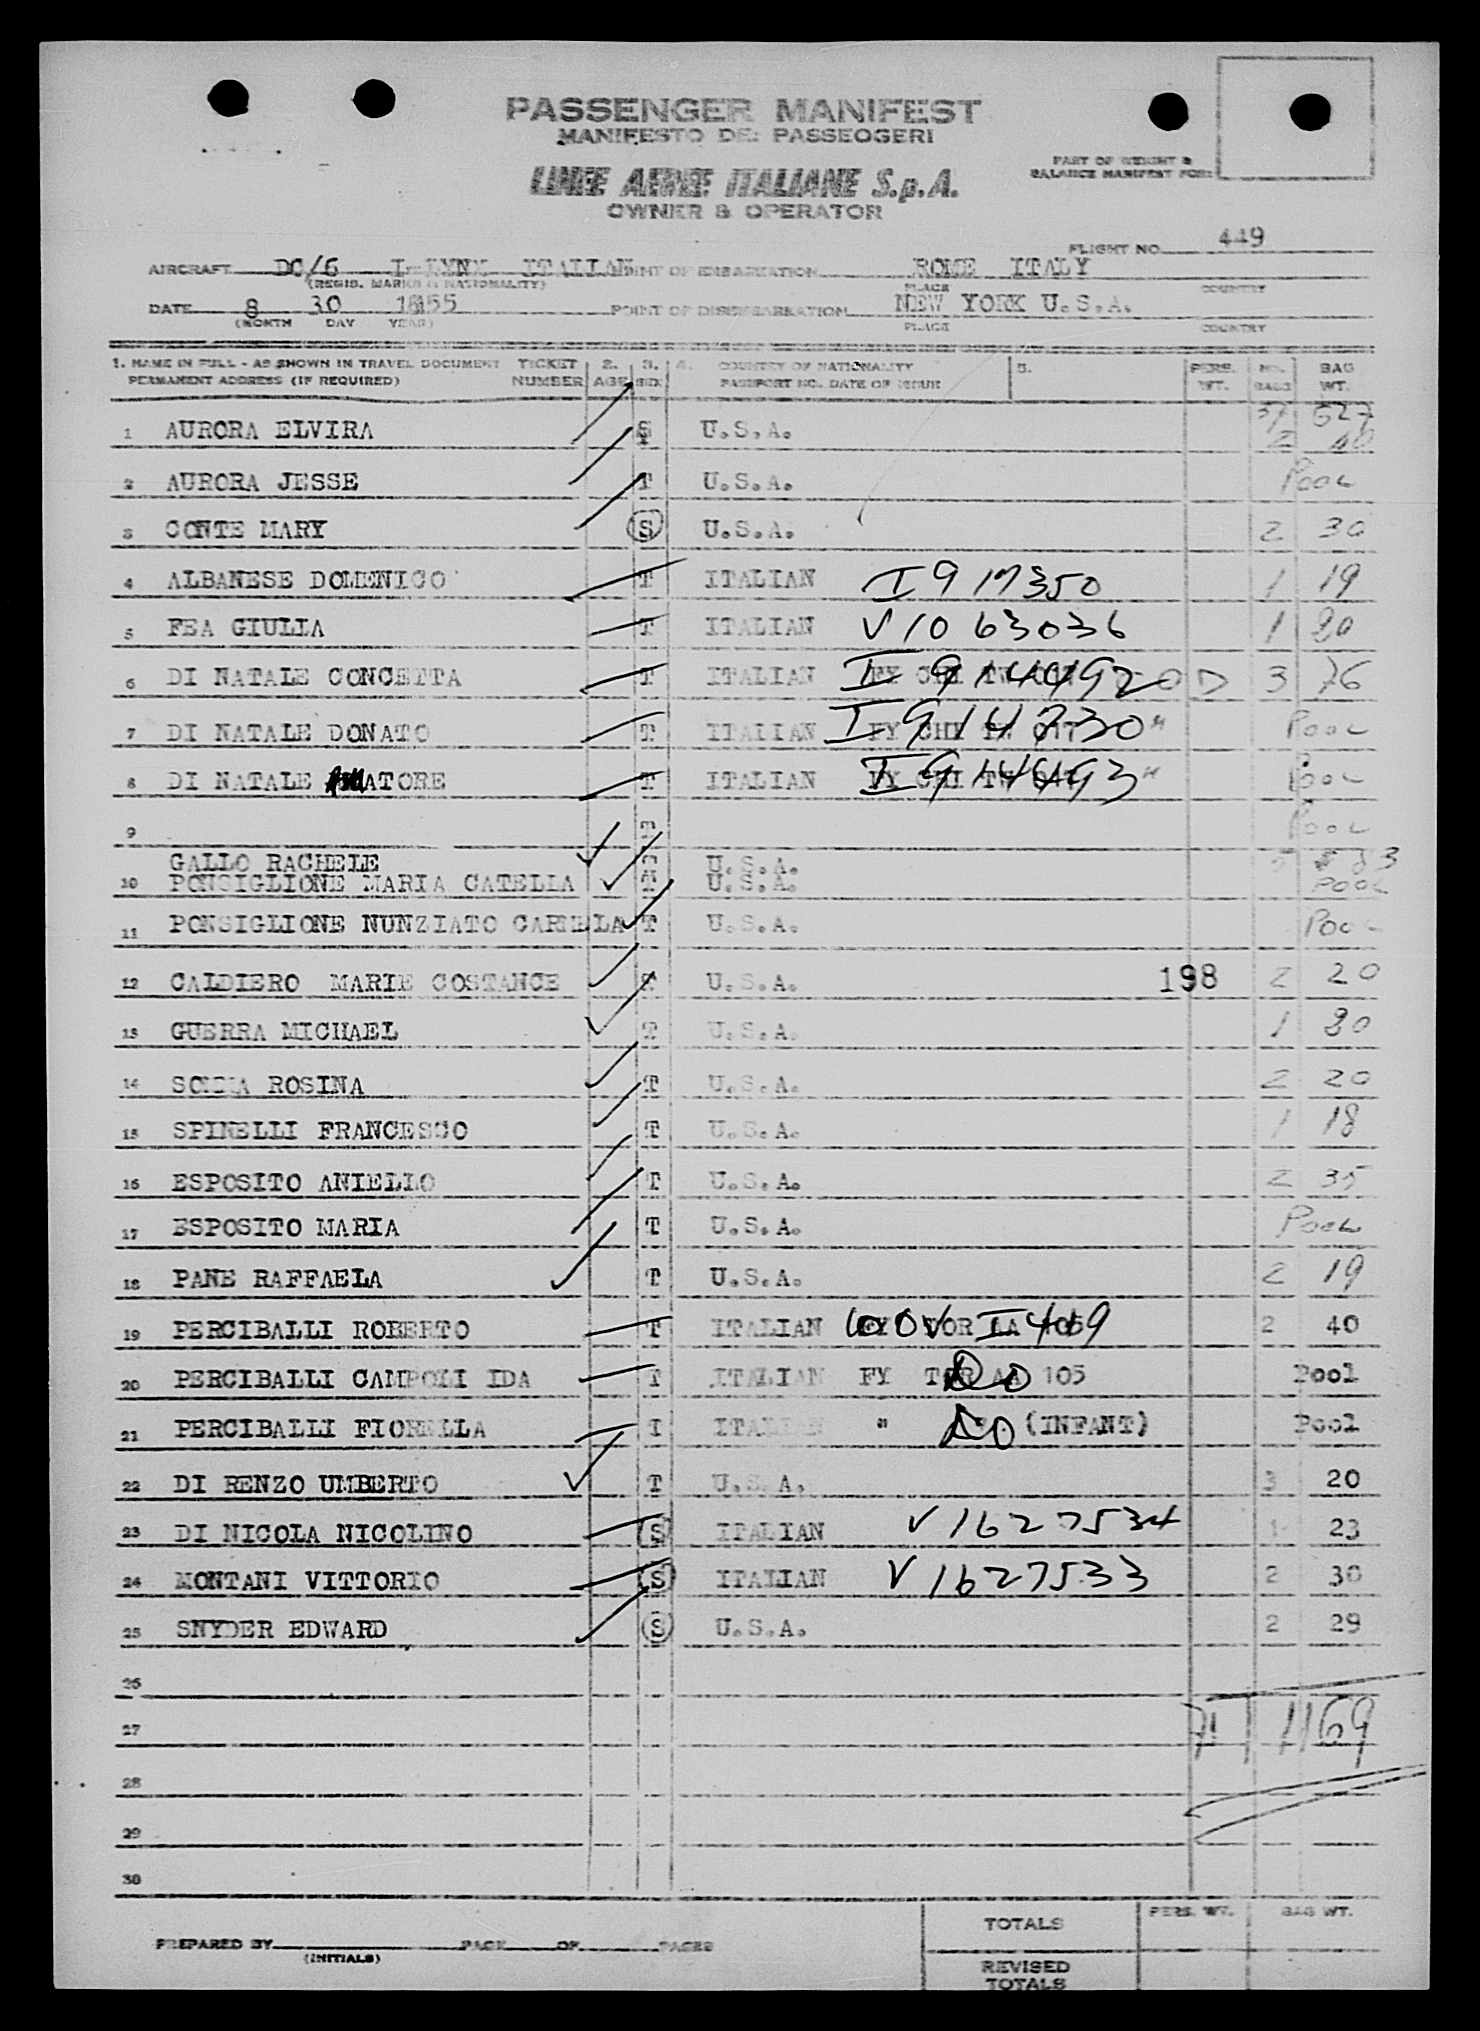 PASSENGER MANIFEST
MANIFESTO DEI PASSEGGERI
LINEE AEREE ITALIANE S.p.A.
OWNER & OPERATOR
PART OF WEIGHT &
BALANCE MANIFEST FOR:
FLIGHT NO. 449
AIRCRAFT DC/6 I-LYNX ITALIAN POINT OF EMBARKATION ROME ITALY
(REGIS. MARKS & NATIONALITY) PLACE COUNTRY
DATE 8 30 1955 POINT OF DISEMBARKATION NEW YORK U.S.A.
(MONTH DAY YEAR) PLACE COUNTRY
1. NAME IN FULL - AS SHOWN IN TRAVEL DOCUMENT TICKET 2. 3. 4. COUNTRY OF NATIONALITY 5. PERS. NO. BAG
PERMANENT ADDRESS (IF REQUIRED) NUMBER AGE SEX PASSPORT NO. DATE OF ISSUE WT. BAGS WT.
37 627
1 AURORA ELVIRA S U.S.A. 2 40
2 AURORA JESSE T U.S.A. Pool
3 CONTE MARY S U.S.A. 2 30
4 ALBANESE DOMENICO T ITALIAN I 917350 1 19
5 FEA GIULIA T ITALIAN V 1063036 1 20
6 DI NATALE CONCETTA T ITALIAN I 914492 3 76
7 DI NATALE DONATO T ITALIAN I 914730 Pool
8 DI NATALE ATORE T ITALIAN I 914493 Pool
9 T Pool
GALLO RACHELE T U.S.A. 5 83
10 PONSIGLIONE MARIA CATELLA T U.S.A. POOL
11 PONSIGLIONE NUNZIATO CARMELA T U.S.A. Pool
12 CALDIERO MARIE COSTANCE T U.S.A. 198 2 20
13 GUERRA MICHAEL T U.S.A. 1 20
14 SOMMA ROSINA T U.S.A. 2 20
15 SPINELLI FRANCESCO T U.S.A. 1 18
16 ESPOSITO ANIELLO T U.S.A. 2 35
17 ESPOSITO MARIA T U.S.A. Pool
18 PANE RAFFAELA T U.S.A. 2 19
19 PERCIBALLI ROBERTO T ITALIAN I 469 2 40
20 PERCIBALLI CAMPOLI IDA T ITALIAN FY TOR AA 105 Do Pool
21 PERCIBALLI FIORELLA T ITALIAN " Do (INFANT) Pool
22 DI RENZO UMBERTO T U.S.A. 3 20
23 DI NICOLA NICOLINO S ITALIAN V 1627534 1 23
24 MONTANI VITTORIO S ITALIAN V 1627533 2 30
25 SNYDER EDWARD S U.S.A. 2 29
26
27 71 1169
28
29
30
PREPARED BY PAGE OF PAGES TOTALS PERS. WT. BAG WT.
(INITIALS) REVISED
TOTALS